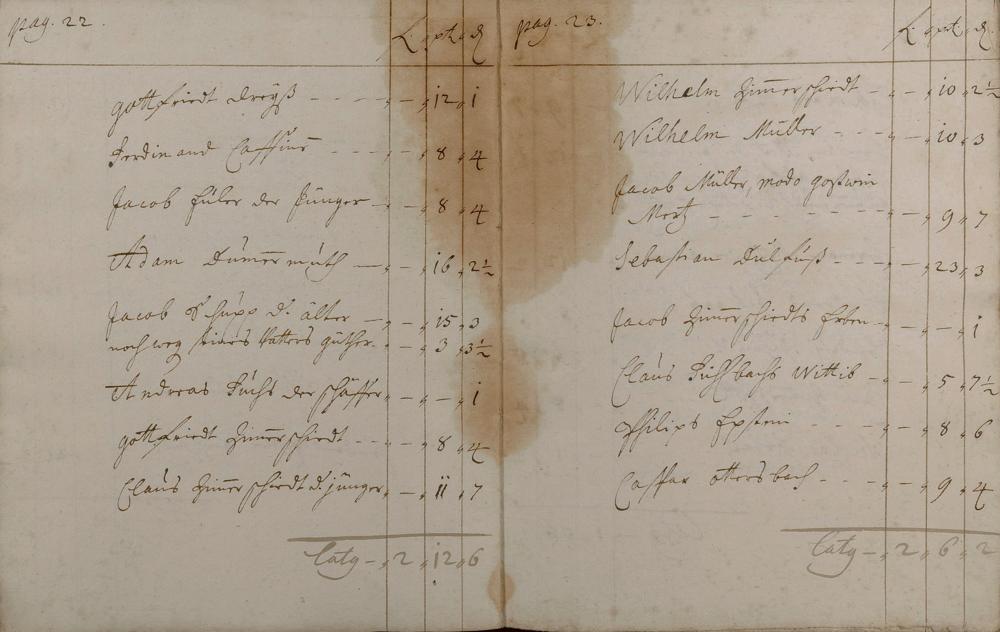 pag. 22.
gottfriedt Dreyß - - - - - - „ 12 „ 1
Ferdinand Caffine - - - - „ - „ 8 „ 4
Jacob füler der Jünger - „ - „ 8 „ 4
Adam Dümermuth - „ - „ 16 „ 2½
Jacob Schupp d. älter - „ - „ 15 „ 3
noch weg seines Vatters güther. - „ - „ 3 „ 3½
Andreas Fuchs der schäffer „ - „ - „ 1
gottfriedt Zimerschiedt - - - „ - „ 8 „ 4
Claus Zimerschiedt d. jünger „ - „ 11 „ 7
Latg - „ 2 „ 12 „ 6
pag. 23.
Wilhelm Zimerschiedt - „ - „ 10 „ 2½
Wilhelm Müller - - - „ - „ 10 „ 3
Jacob Müller, modo goßwin
Mertz - - - - - - - „ - „ 9 „ 7
Sebastian Dülfuß - - - „ - „ 23 „ 3
Jacob Zimerschiedts Erben - „ - „ - „ 1
Claus Fischbachs Wittib - „ - „ 5 „ 7½
Philips Epstein - - - - „ - „ 8 „ 6
Caspar ottersbach - - - - „ - „ 9 „ 4
Latg - „ 2 „ 6 „ 2